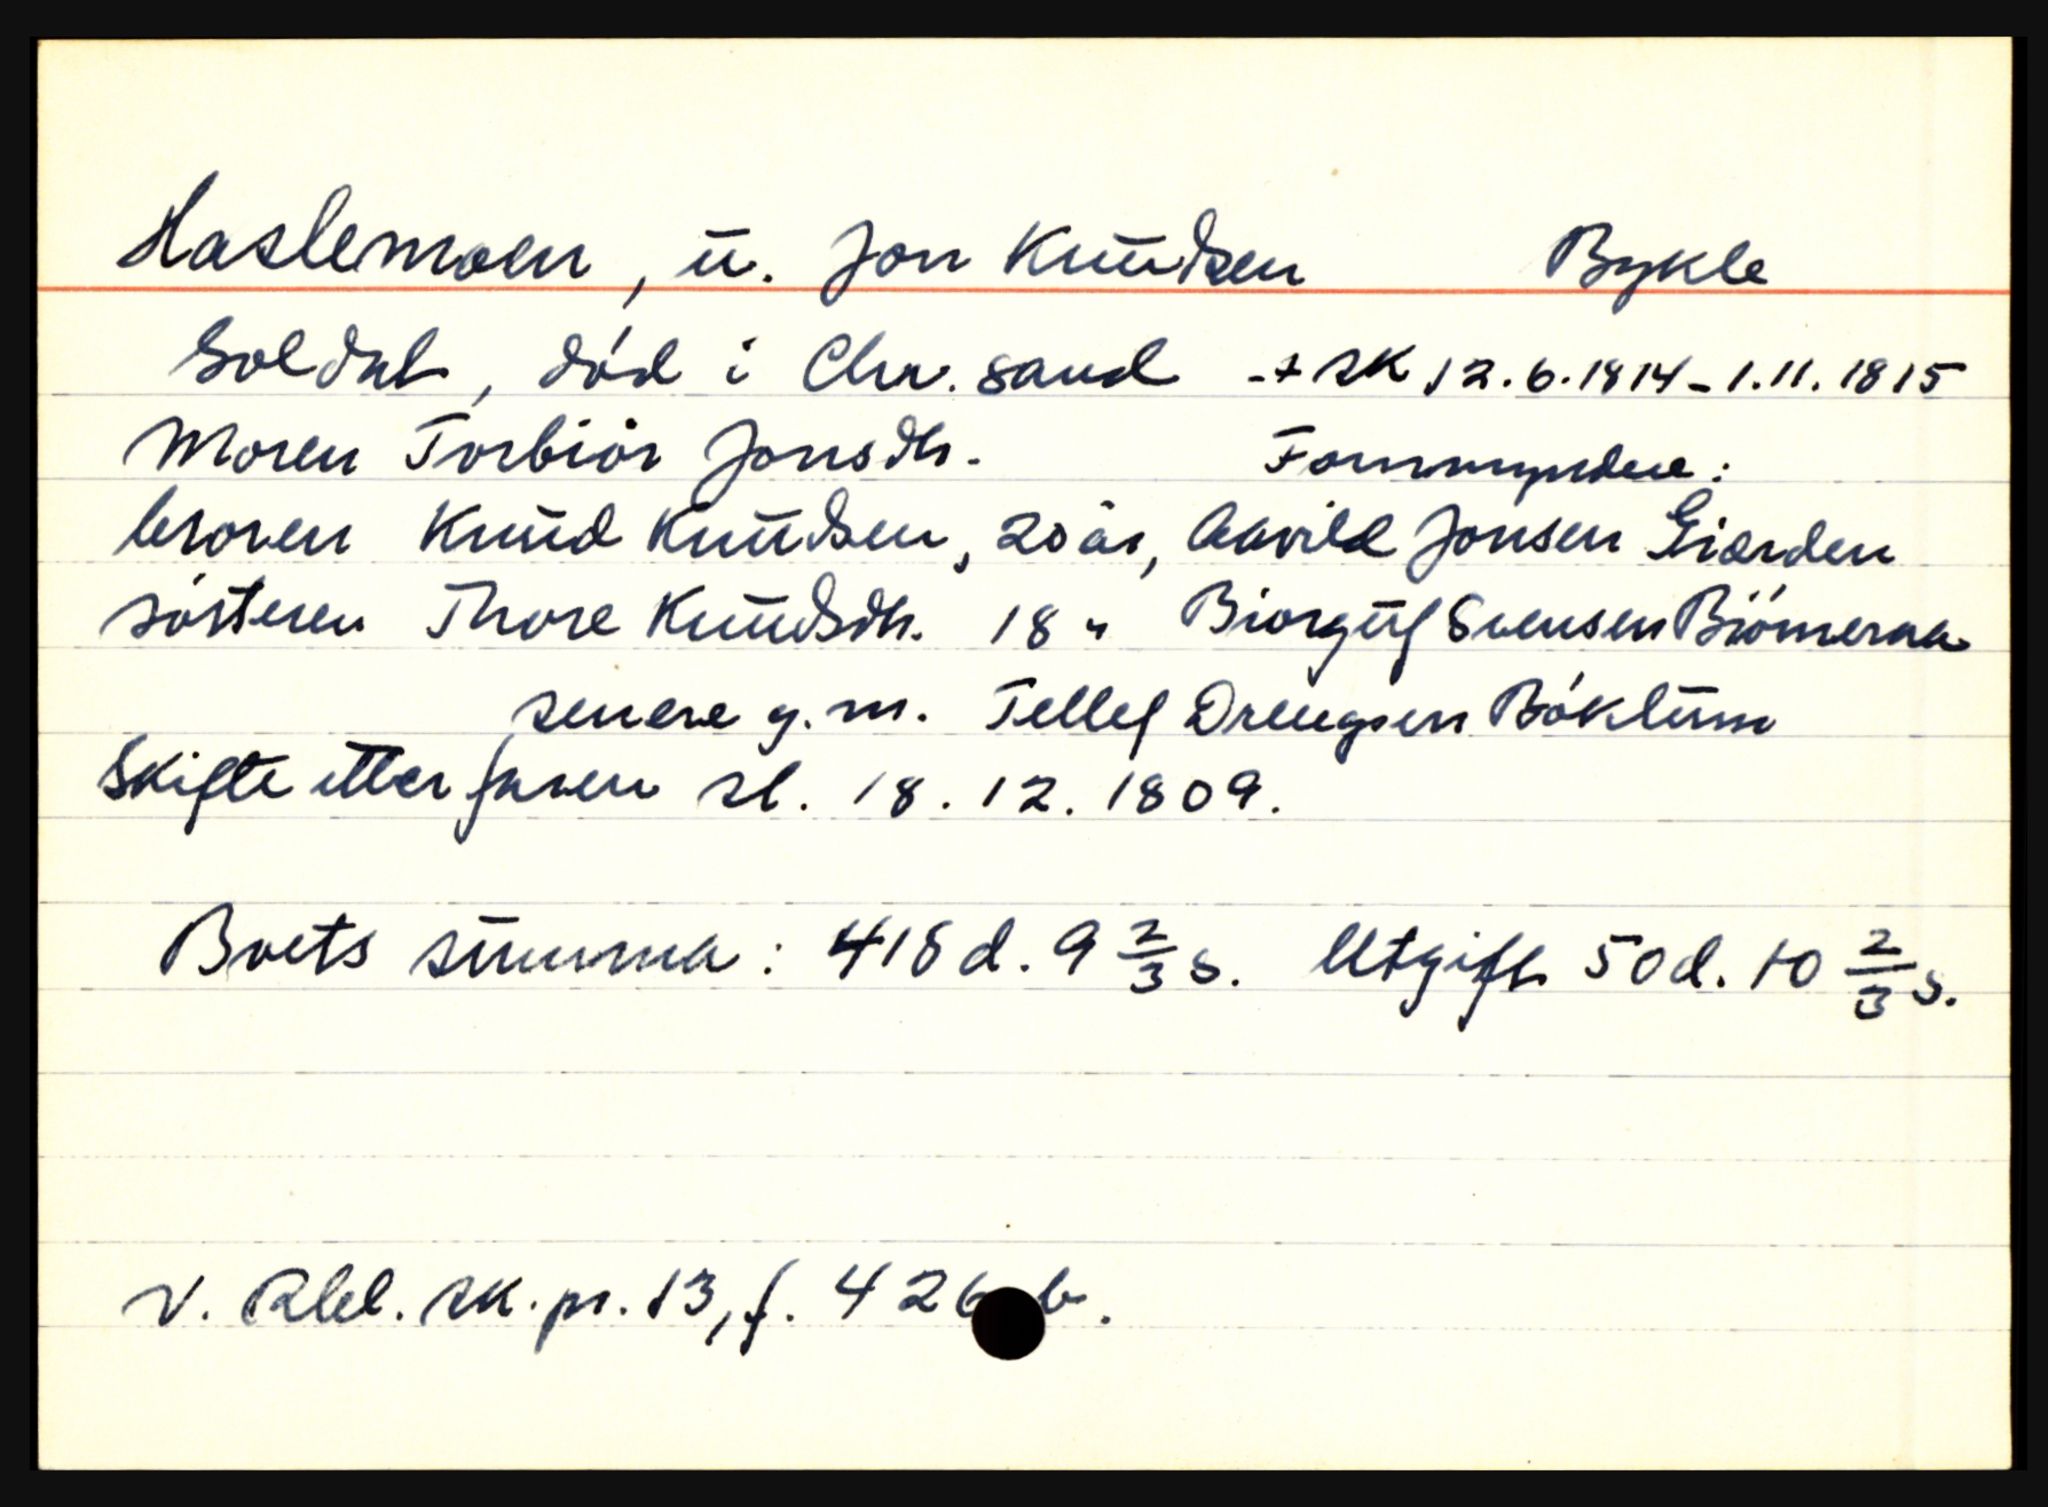 Haslemoen, u. Jon Knudsen Bykle
Soldat, død i Chr.sand + sk 12.6.1814 - 1.11.1815
Moren Torbiør Jonsdtr. Formyndere:
broren Knud Knudsen, 20 år, Aavild Jonsen Giærden
søsteren Thore Knudsdtr. 18 " Biorguf Svensen Biørneraa
senere g.m. Tellef Drengsen Bøklum
Skifte etter faren sl. 18.12.1809.
Boets summa: 418 d. 9 2/3 s. Utgift 50 d. 10 2/3 s.
V. Rbl. sk.pr. 13, f. 426 b.